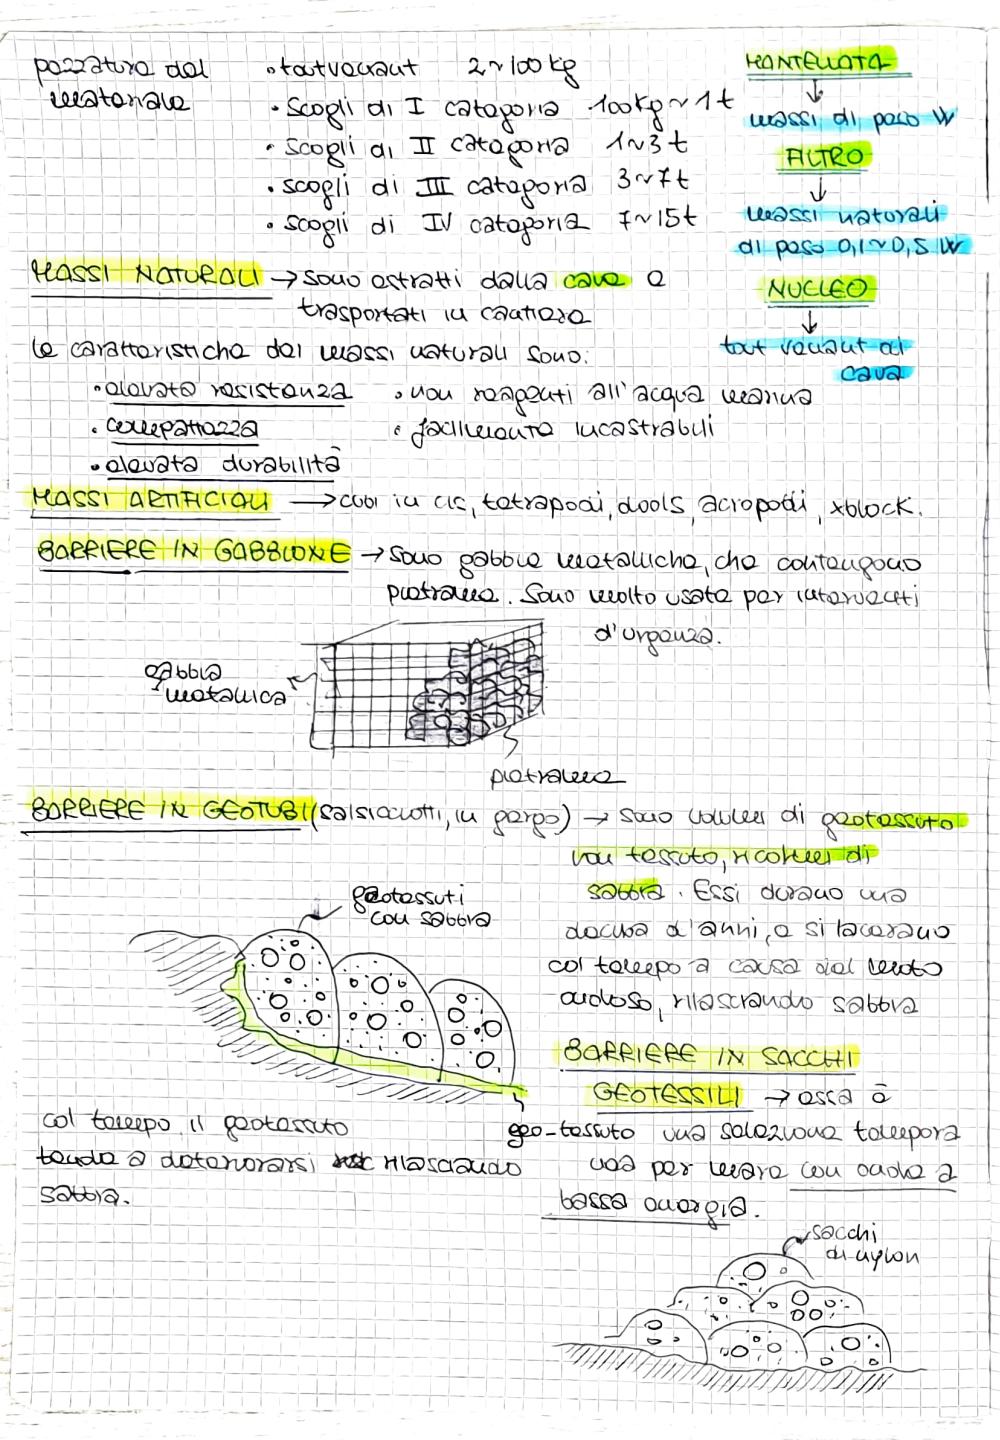 pezzatura del materiale
• toutvenant 2~100 kg
• Scogli di I categoria 100kg~1t
• scogli di II categoria 1~3 t
• scogli di III categoria 3~7t
• scogli di IV categoria 7~15t
MANTELLATA
↓
massi di peso W
FILTRO
↓
massi naturali
di peso 0,1~0,5 W
NUCLEO
↓
tout venant di
cava
MASSI NATURALI → sono estratti dalla cava e
trasportati in cantiere
le caratteristiche dei massi naturali sono:
• elevata resistenza • non reagenti all'acqua marina
• compattezza • facilmente incastrabili
• elevata durabilità
MASSI ARTIFICIALI → cubi in cls, tetrapodi, dools, acropodi, xblock.
BARRIERE IN GABBIONE → sono gabbie metalliche, che contengono
pietrame. Sono molto usate per interventi
d'urgenza.
gabbia
metallica
pietrame
BARRIERE IN GEOTUBI (salsicciotti, in gergo) → sono volumi di geotessuto
non tessuto, ricolmi di
sabbia. Essi durano una
decina d'anni, e si lacerano
col tempo a causa del moto
ondoso, rilasciando sabbia
geotessuti
con sabbia
geo-tessuto
col tempo il geotessuto
tende a deteriorarsi rilasciando
sabbia.
BARRIERE IN SACCHI
GEOTESSILI → essa è
una soluzione tempora
nea per mare con onde a
bassa energia.
sacchi
di nylon